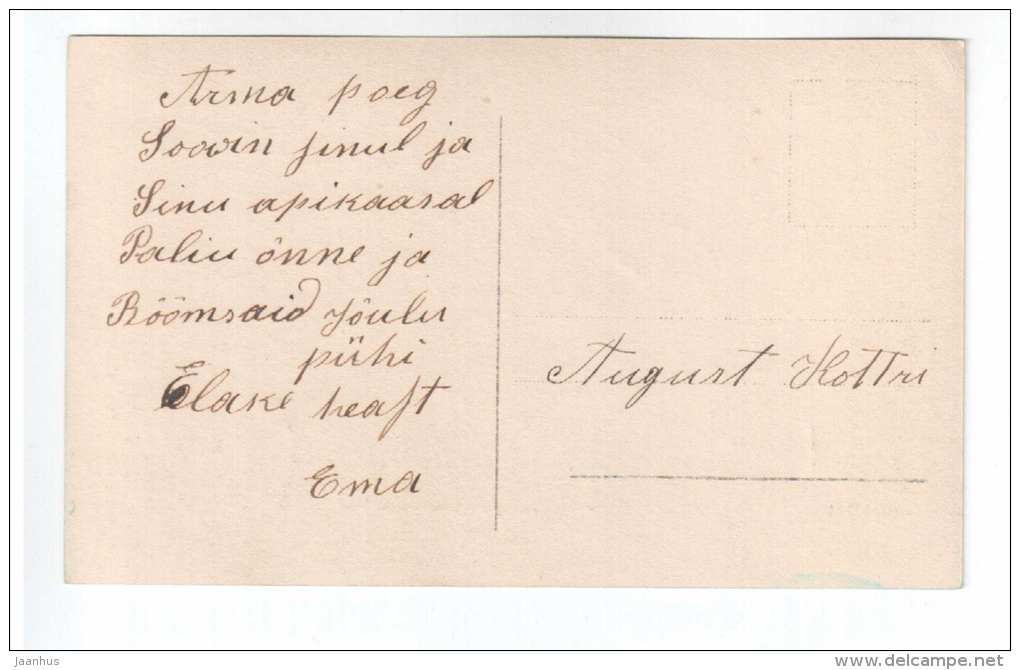 Arma poeg
Soowin sinul ja
Sinu apikaasal
Paliu õnne ja
Rõõmsaid Jõulu
pühi
Elake heast
Ema
August Kottri
jaanhus
delcampe.net